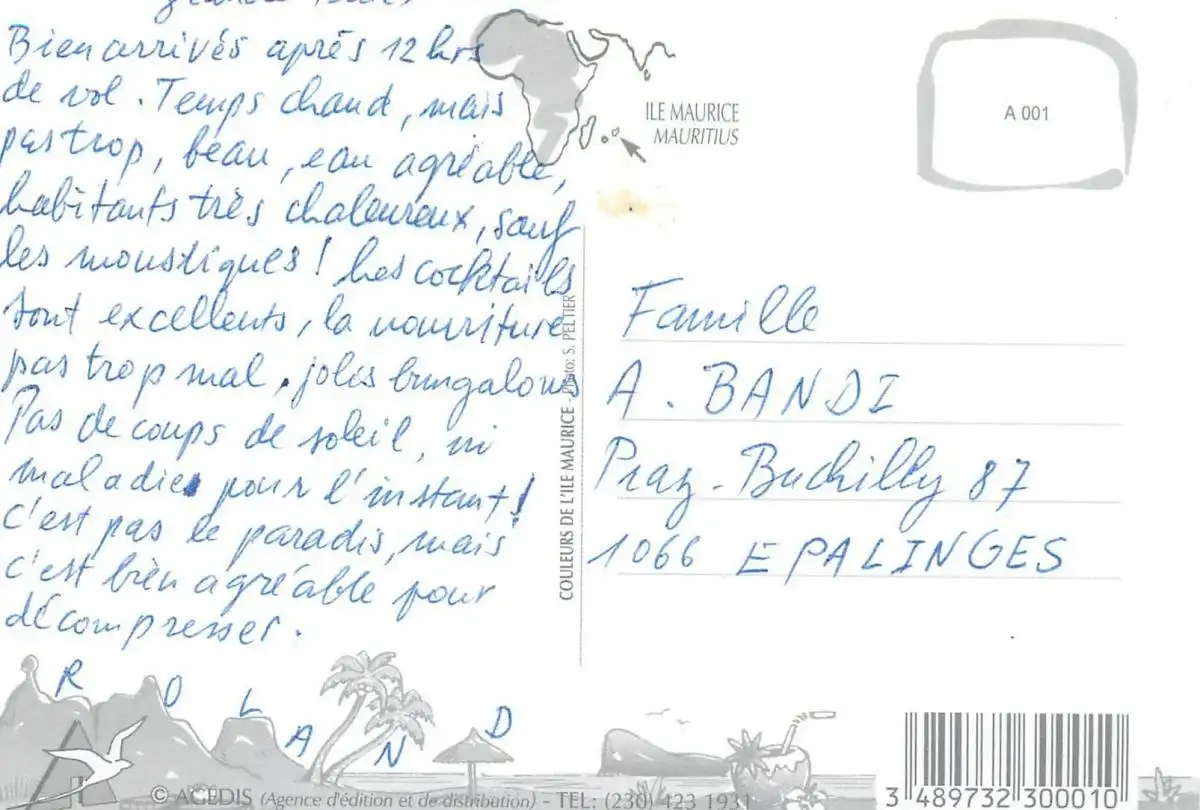 Bien arrivés après 12 hrs
de vol. Temps chaud, mais
pas trop, beau, eau agréable,
habitants très chaleureux, sauf
les moustiques! Les cocktails
sont excellents, la nourriture
pas trop mal, jolis bungalows
Pas de coups de soleil, ni
maladies pour l'instant!
c'est pas le paradis, mais
c'est bien agréable pour
décompresser.
ROLAND
ILE MAURICE
MAURITIUS
A 001
COULEURS DE L'ILE MAURICE - Photo: S. PELTIER
Famille
A. BANDI
Praz-Buchilly 87
1066 EPALINGES
© AGEDIS (Agence d'édition et de distribution) - TEL: (230) 423 1931
3 489732 300010